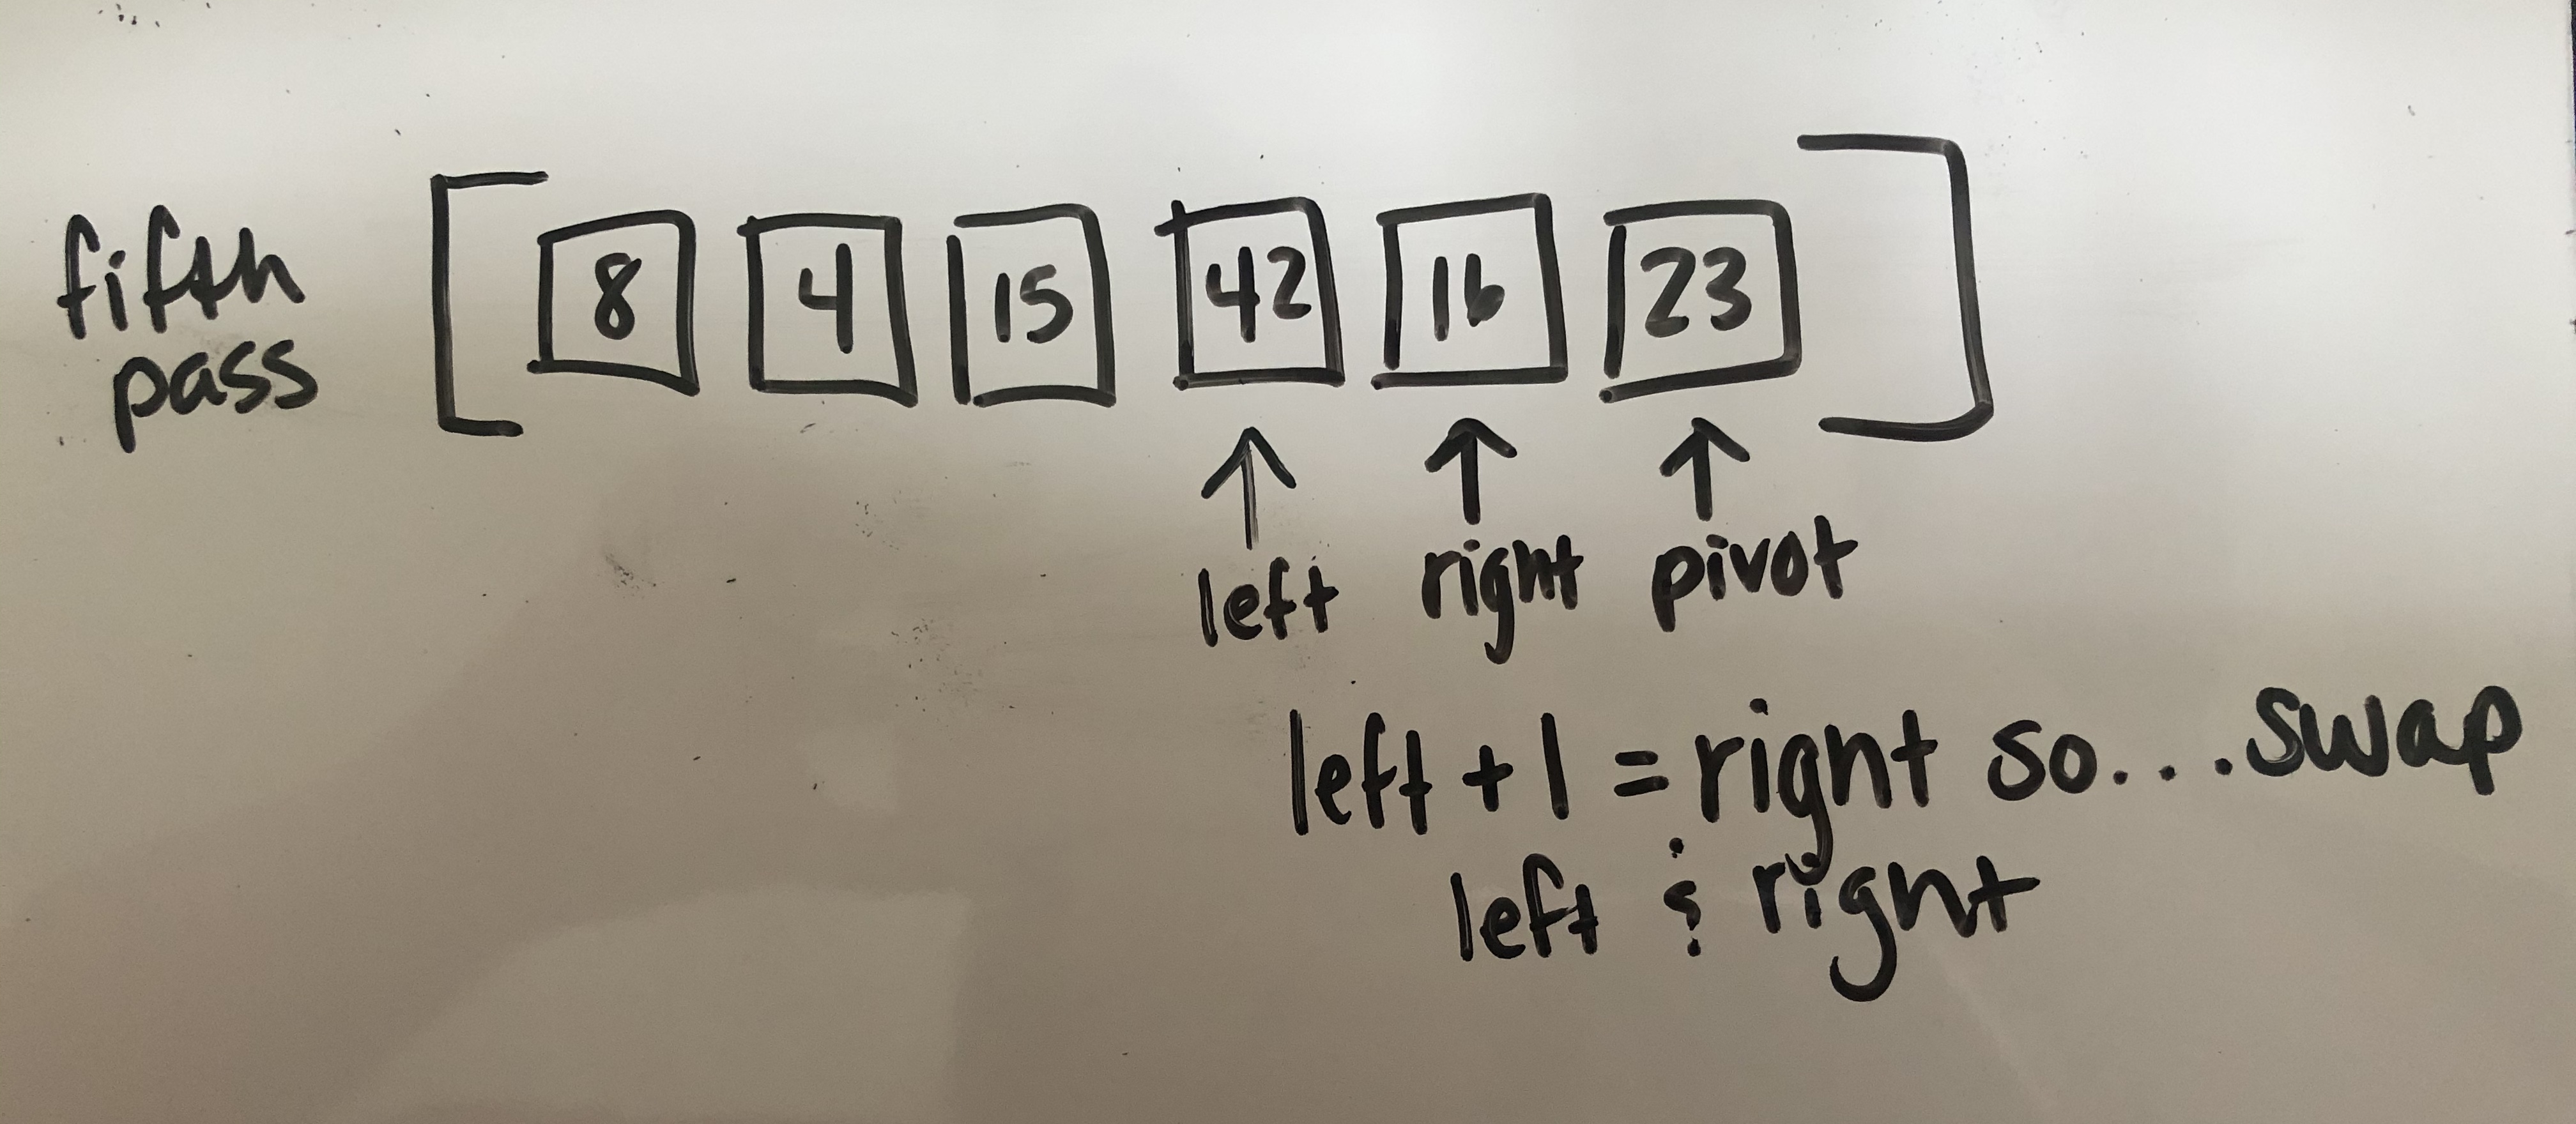 fifth pass
8 4 15 42 16 23
left right pivot
left + 1 = right so...swap
left & right